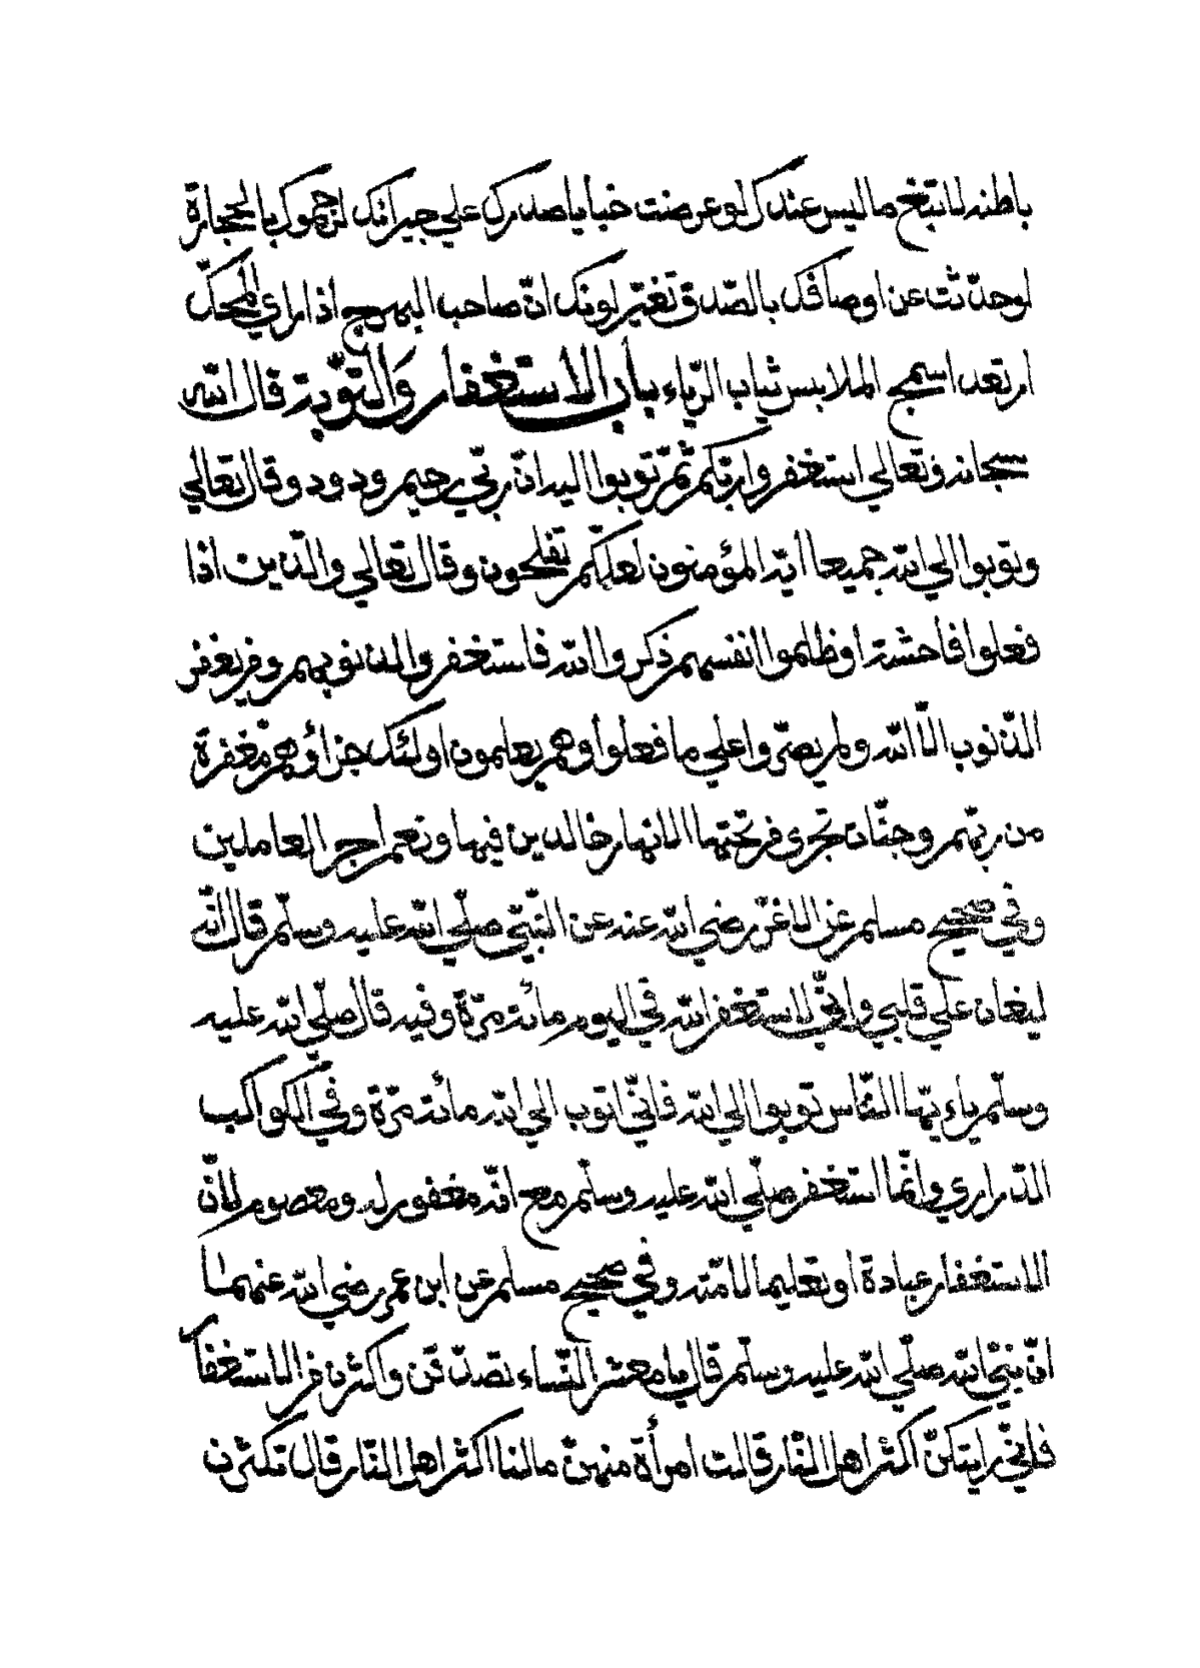 باطنه لا تبتغ ما ليس عندك لو عرضت خبايا صدرك علي جيرانك لرجموك بالحجارة
لو حدّثت عن اوصافك بالصّدق تغيّر لونك انّ صاحب البهرج اذا راي المحكّ
ارتعد اسمج الملابس ثياب الرّياء باب الاستغفار والتّوبة قال الله
سبحانه وتعالي استغفروا ربّكم ثمّ توبوا اليه انّ ربّي رحيم ودود وقال تعالي
وتوبوا الي الله جميعا ايّه المؤمنون لعلّكم تفلحون وقال تعالي والّذين اذا
فعلوا فاحشة او ظلموا انفسهم ذكروا الله فاستغفروا لذنوبهم ومن يغفر
الذّنوب الّا الله ولم يصرّوا علي ما فعلوا وهم يعلمون اولئك جزاؤهم مغفرة
من ربّهم وجنّات تجري من تحتها الانهار خالدين فيها ونعم اجر العاملين
وفي صحيح مسلم عن الاغرّ رضي الله عنه عن النّبيّ صلّي الله عليه وسلّم قال انّه
ليغان علي قلبي وانّي لاستغفر الله في اليوم مائة مرّة وفيه قال صلّي الله عليه
وسلّم ياءيّها النّاس توبوا الي الله فانّي اتوب الي الله مائة مرّة وفي الكواكب
الدّراري وانّما استغفر صلّي الله عليه وسلّم مع انّه مغفور له ومعصوم لانّ
الاستغفار عبادة او تعليما لامّته وفي صحيح مسلم عن ابن عمر رضي الله عنهما
انّ نبيّ الله صلّي الله عليه وسلّم قال يا معشر النّساء تصدّقن واكثرن من الاستغفار
فانّي رايتكنّ اكثر اهل النّار قالت امرأة منهنّ ما لنا اكثر اهل النّار قال تكثرن